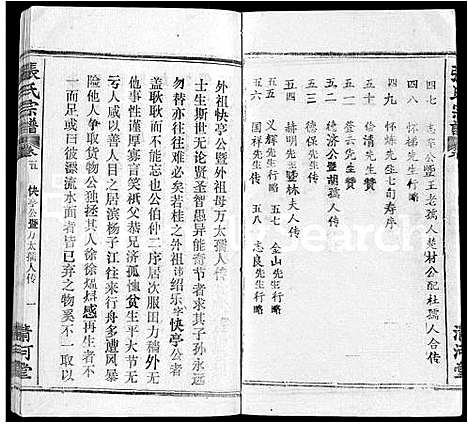 四七 志寧公暨王老孺人是材公配杜孺人合传
四八 怀梯先生行略
四九 怀炼先生七旬寿序
五十 绘清先生赞
五一 莹云先生赞
五二 德济公暨胡孺人传
五三 德保先生行略
五四 赫明先生暨林夫人传
五五 先生行略
五六 国祥先生行略
五七 金山先生行略
五八 志良先生行略
清河堂
張氏宗譜
卷五
快亭公暨万太孺人传
一
清河堂
外祖快亭公暨外祖母万太孺人传
士生斯世无论贤圣智愚异能奇节者求其子孙永远
勿替亦往往难必矣若桂之外祖讳绍乐字快亭公者
盖耿耿而不能忘也公伯仲二序居次服田力穑外无
亏人咸以善人目之居滨杨子江往来行舟多遭风暴
险他人争取货物公独拯其人徐徐煴感再生者不
一而足或曰彼漂流水面者皆已弃之物奚不一取以